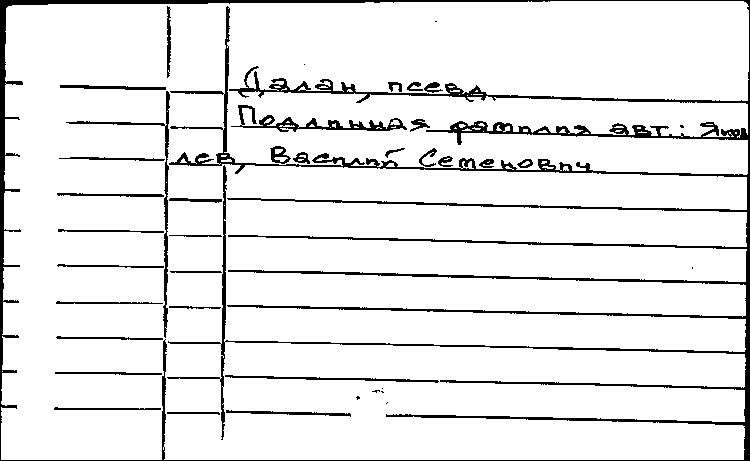 Далан, псевд.
Подлинная фамилия авт.: Яков
лев, Василий Семенович